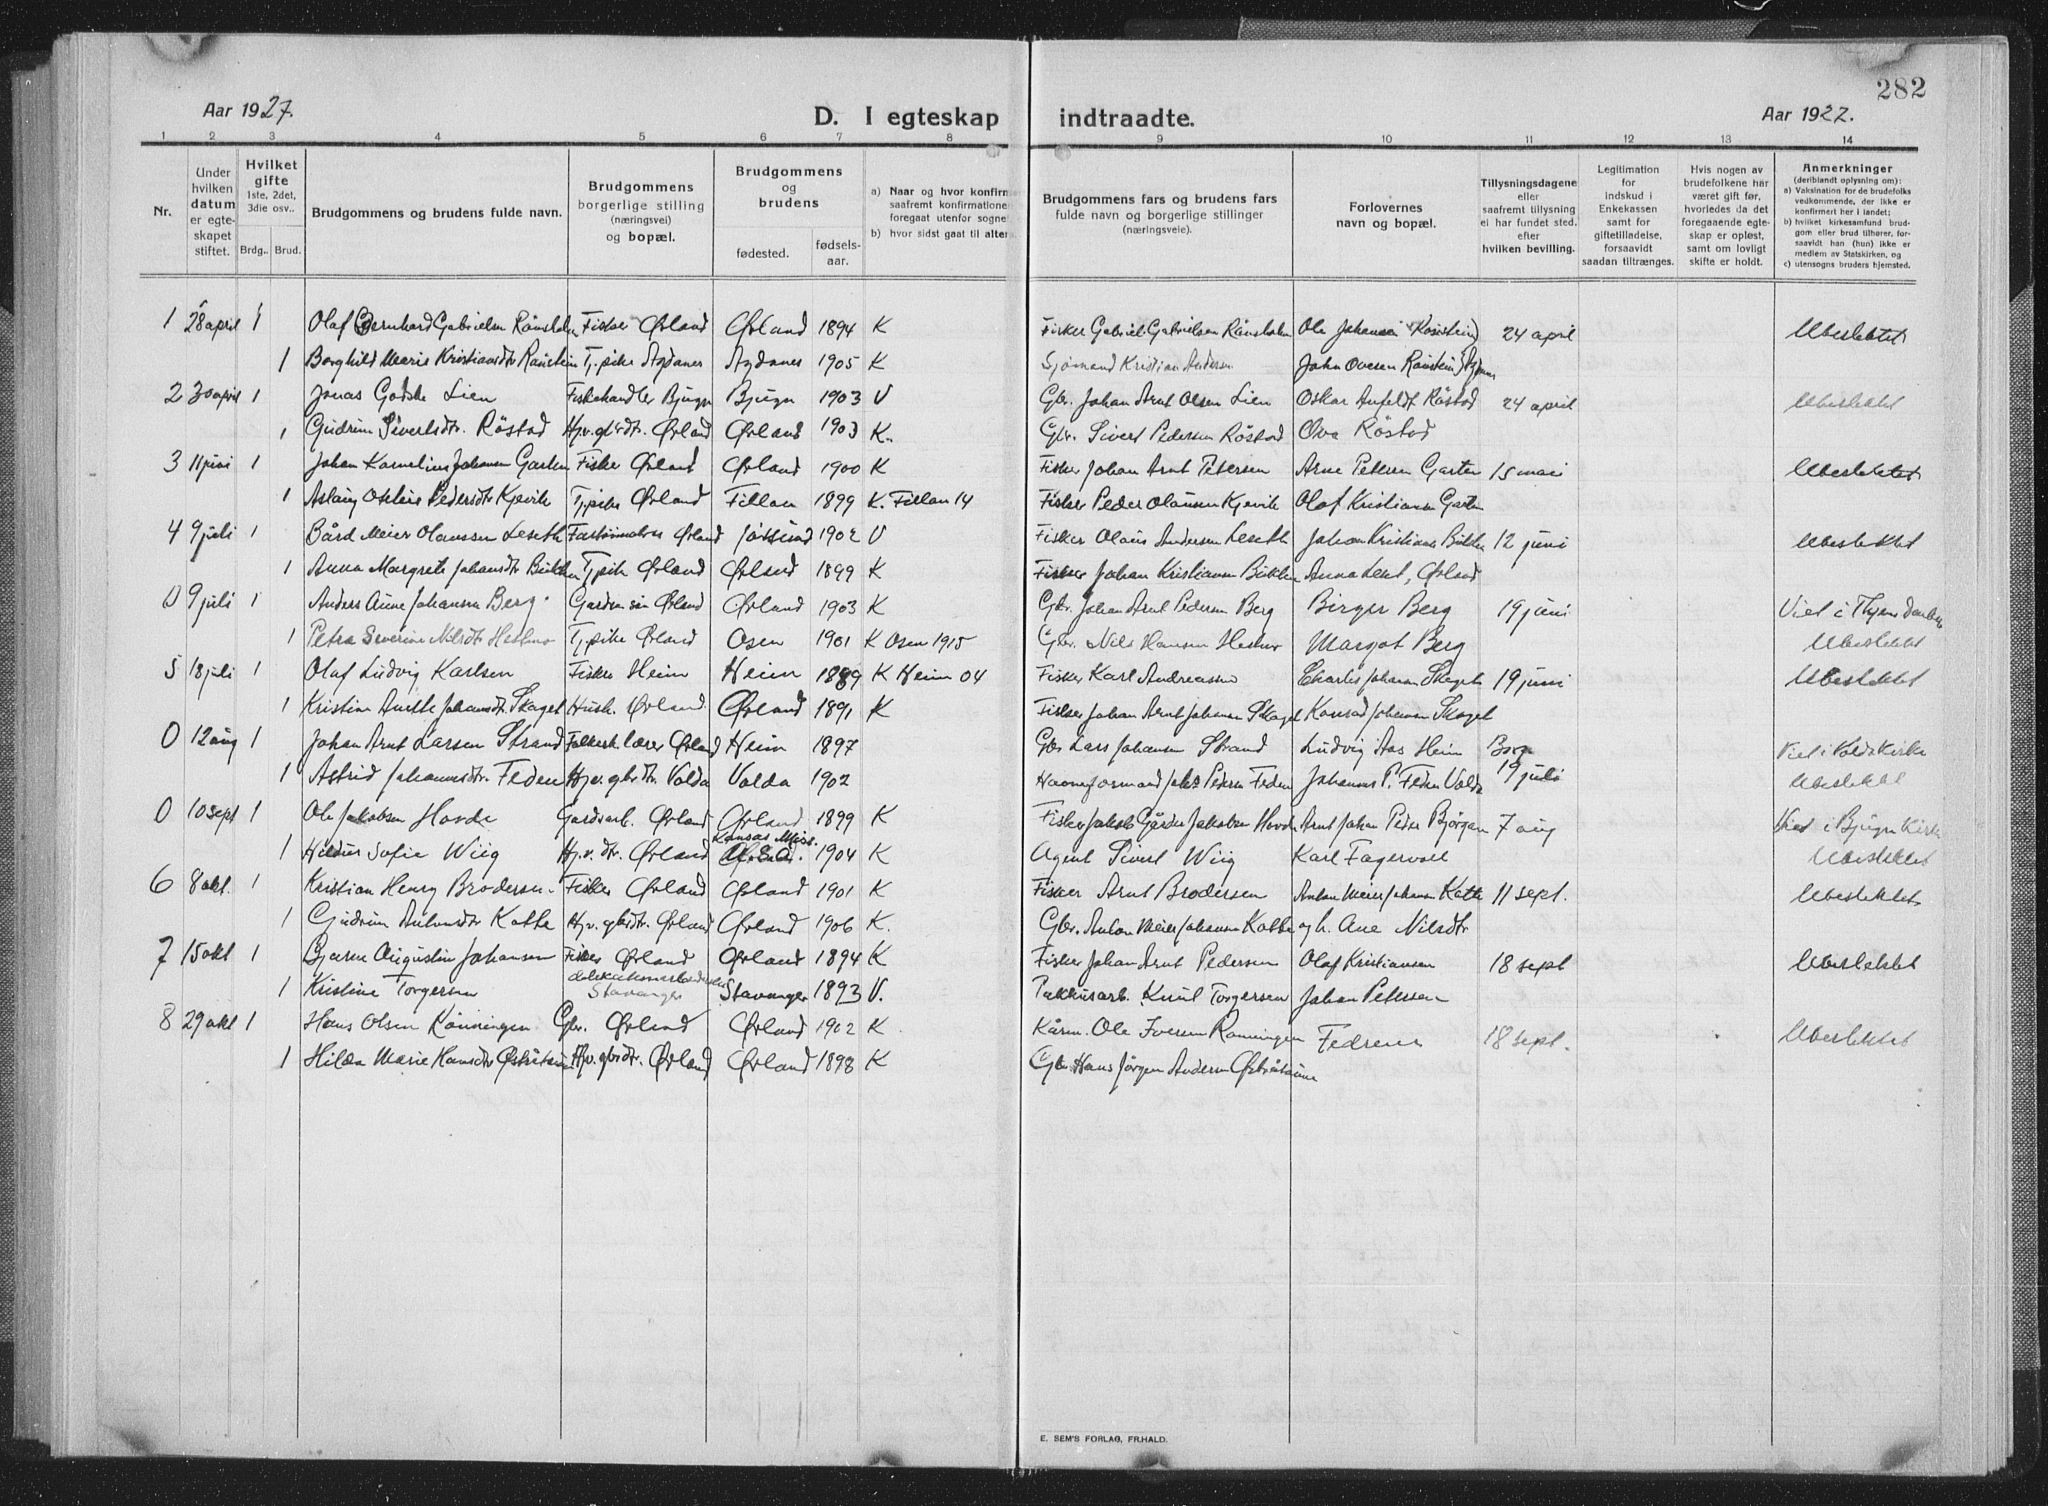 282
Aar 1927.
D. I egteskap indtraadte.
Aar 1927.
1 2 3 4 5 6 7 8 9 10 11 12 13 14
Nr.
Under hvilken datum er egteskapet stiftet.
Hvilket gifte 1ste, 2det, 3die osv..
Brdg.. Brud.
Brudgommens og brudens fulde navn.
Brudgommens borgerlige stilling (næringsvei) og bopæl.
Brudgommens og brudens
fødested. fødsels-aar.
a) Naar og hvor konfirm saafremt konfirmationen foregaat utenfor sognet
b) hvor sidst gaat til alters.
Brudgommens fars og brudens fars fulde navn og borgerlige stillinger (næringsveie).
Forlovernes navn og bopæl.
Tillysningsdagene eller saafremt tillysning ei har fundet sted. efter hvilken bevilling.
Legitimation for indskud i Enkekassen samt for giftetilladelse, forsaavidt saadan tiltrænges.
Hvis nogen av brudefolkene har været gift før, hvorledes da det foregaaende egteskap er opløst, samt om lovligt skifte er holdt.
Anmerkninger (deriblandt oplysning om): a) Vaksination for de brudefolks vedkommende, der ikke er konfirmert her i landet; b) hvilket kirkesamfund brudgom eller brud tilhører, forsaavidt han (hun) ikke er medlem av Statskirken, og c) utensogns bruders hjemsted.
1 28 april 1 Olaf Bernhard Gabrielsen Rånsholm Fisker Ørland Ørland 1894 K Fisker Gabriel Gabrielsen Rånsholm Ole Johansen 24 april Ubeslektet
1 Borghild Marie Kristiansdtr Tj.pike Agdanes Agdanes 1905 K Sjømand Kristian Andersen John Ovesen
2 30 april 1 Jonas Godske Lien Fiskehandler Bjugn Bjugn 1903 V Gbr. Johan Arnt Olsen Lien Oskar Anfeldt Røstad 24 april Ubeslektet
1 Gudrun Sivertsdtr. Røstad Hjv. gbrdtr. Ørland Ørland 1903 K. Gbr. Sivert Pedersen Røstad Ova Røstad
3 11 juni 1 Johan Kornelius Johansen Garten Fisker Ørland Ørland 1900 K Fisker Johan Arnt Petersen Arne Petersen Garten 15 mai Ubeslektet
1 Aslaug Pedersdtr Kjevik Tj.pike Ørland Fillan 1899 K. Fillan 14 Fisker Peder Olausen Kjevik Olaf Kristiansen Garten
4 9 juli 1 Bård Meier Olaussen Leseth Ørland Jøssund 1902 V Fisker Olaus Andersen Leseth Johan Kristiansen 12 juni Ubeslektet
1 Anna Margrete Johansdtr Tj.pike Ørland Ørland 1899 K Fisker Johan Kristiansen Anna Leset, Ørland
0 9 juli 1 Anders Aune Johansen Berg. Ørland Ørland 1903 K Gbr. Johan Arnt Pedersen Berg Birger Berg 19 juni Viet i
1 Petra Severine Nilsdtr Tj.pike Ørland Osen 1901 K Osen 1915 Gbr. Nils Hansen Margot Berg Ubeslektet
5 18 juli 1 Olaf Ludvig Karlsen Fisker Heim Heim 1889 K Heim 04 Fisker Karl Andreassen Charles Johansen Skaget 19 juni Ubeslektet
1 Kristine Johansdtr. Skaget Hush. Ørland Ørland 1891 K Fisker Johan Arnt Johansen Skaget Konrad Johansen Skaget
0 12 aug 1 Johan Arnt Larsen Strand Folkesk.lærer Ørland Heim 1897 Gbr. Lars Johansen Strand Ludvig Aas Heim Viet i Volda Kirke
1 Astrid Johannesdtr. Feden Hjv. gbr.dtr. Volda Volda 1902 Johs Pedersen Feden Johannes P. Feden Volda 19 juli Ubeslektet
0 10 sept 1 Ole Jakobsen Hovde Gardsarb. Ørland Ørland 1899 K Fisker Jakob Jakobsen Hovde Arnt Johan Peder Bjørgan 7 aug Viet i Bjugn Kirke
1 Hildur Sofie Wiig Hjv. dtr. Ørland Kansas 1904 K Agent Sivert Wiig Karl Fagervoll Ubeslektet
6 8 okt. 1 Kristian Henry Brodersen Fisker Ørland Ørland 1901 K Fisker Arnt Brodersen Anton Meier Johansen Kotte 11 sept. Ubeslektet
1 Gudrun Antonsdtr Kotte Hjv. gbrdtr. Ørland Ørland 1906 K. Gbr. Anton Meier Johansen Kotte og h. Ane Nilsdtr
7 15 okt 1 Bjarne Augustin Johansen Fisker Ørland Ørland 1894 K Fisker Johan Arnt Pedersen Olaf Kristiansen 18 sept Ubeslektet
1 Kristine Torgersen Stavanger Stavanger 1893 V. Pakkusarb. Knut Torgersen Johan Petersen
8 29 okt 1 Hans Olsen Rønningen Gbr. Ørland Ørland 1902 K Kårm. Ole Iversen Rønningen Fedrene 18 sept. Ubeslektet
1 Hilda Marie Hansdtr Hjv. gbrdtr. Ørland Ørland 1898 K Gbr. Hans Jørgen Andersen
E. SEM'S FORLAG, FR.HALD.